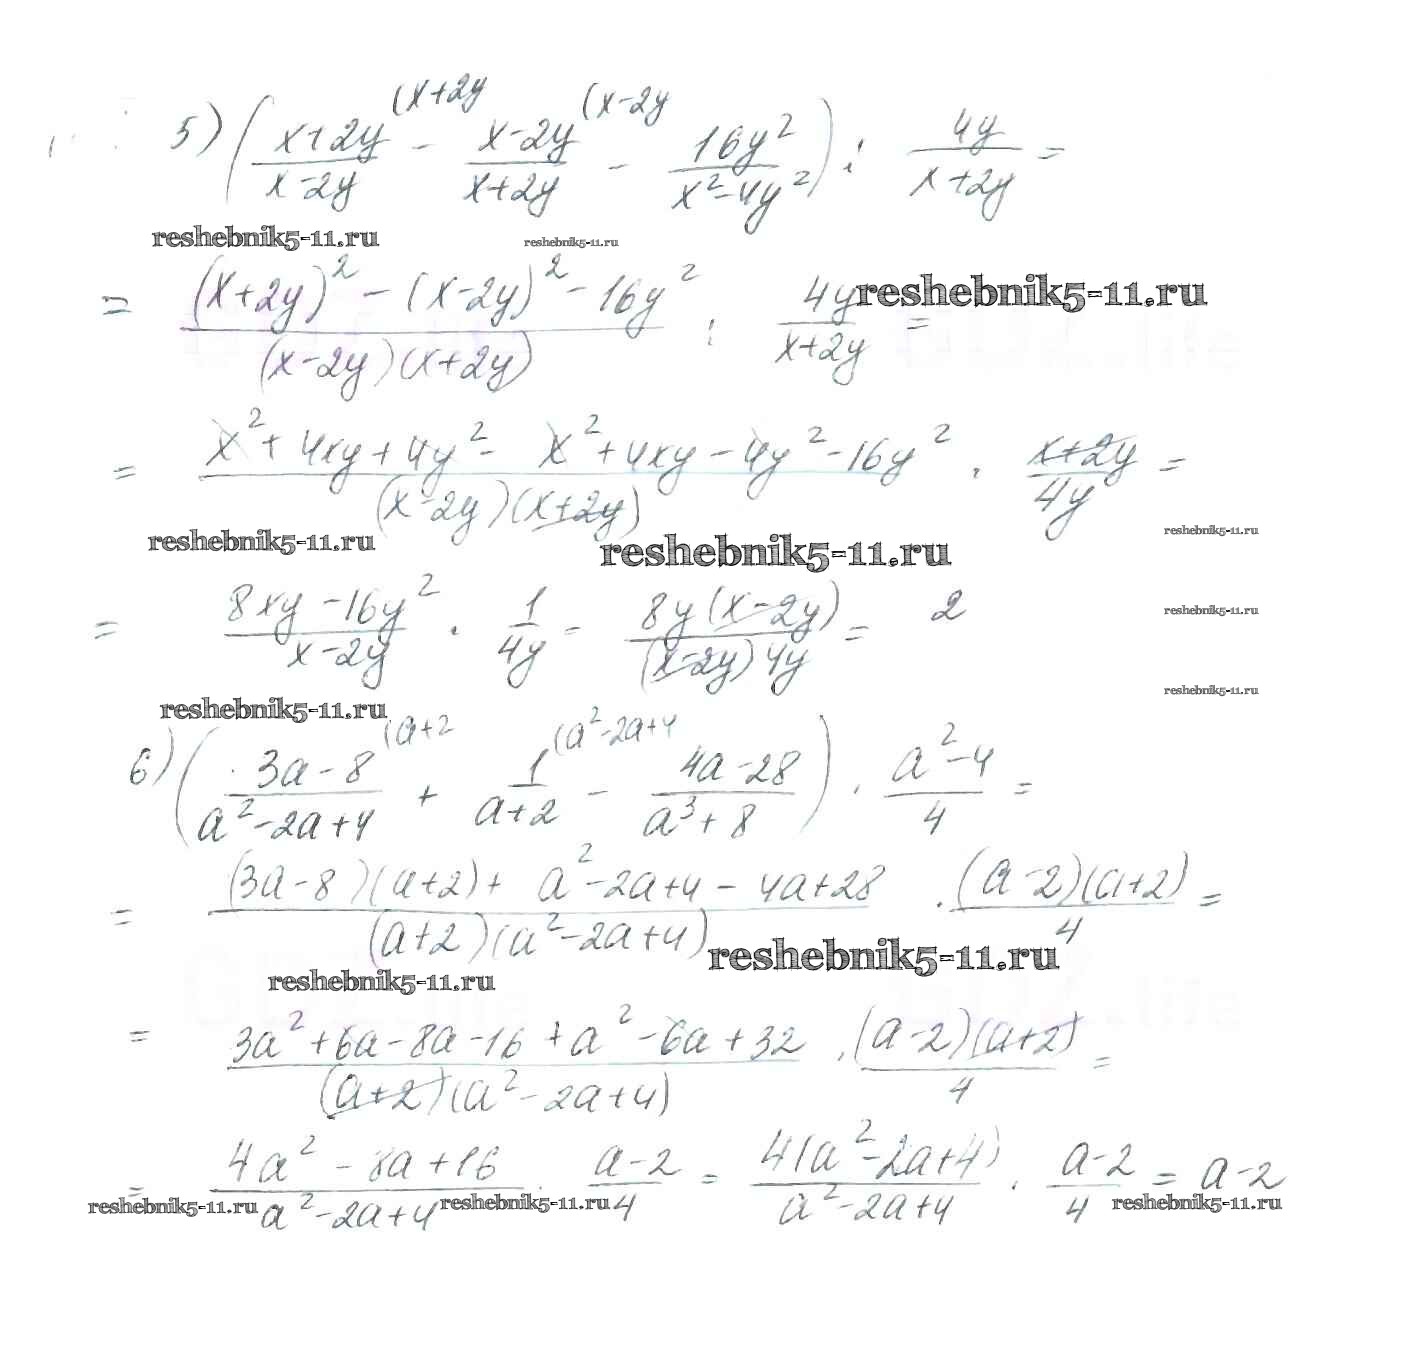 5) ( (x+2y)/(x-2y) (x+2y - (x-2y)/(x+2y) (x-2y - 16y²/(x²-4y²) ) : 4y/(x+2y) =
reshebnik5-11.ru reshebnik5-11.ru
= ((x+2y)² - (x-2y)² - 16y²)/((x-2y)(x+2y)) : 4y/(x+2y) = reshebnik5-11.ru
= (x² + 4xy + 4y² - x² + 4xy - 4y² - 16y²)/((x-2y)(x+2y)) · (x+2y)/4y =
reshebnik5-11.ru reshebnik5-11.ru reshebnik5-11.ru
= (8xy - 16y²)/(x-2y) · 1/4y = 8y(x-2y)/((x-2y)4y) = 2 reshebnik5-11.ru
reshebnik5-11.ru reshebnik5-11.ru
6) ( (3a-8)/(a²-2a+4) (a+2 + 1/(a+2) (a²-2a+4 - (4a-28)/(a³+8) ) · (a²-4)/4 =
= ((3a-8)(a+2) + a²-2a+4 - 4a+28)/((a+2)(a²-2a+4)) · (a-2)(a+2)/4 =
reshebnik5-11.ru reshebnik5-11.ru
= (3a²+6a-8a-16+a²-6a+32)/((a+2)(a²-2a+4)) · (a-2)(a+2)/4 =
= (4a²-8a+16)/(a²-2a+4) · (a-2)/4 = 4(a²-2a+4)/(a²-2a+4) · (a-2)/4 = a-2
reshebnik5-11.ru reshebnik5-11.ru reshebnik5-11.ru